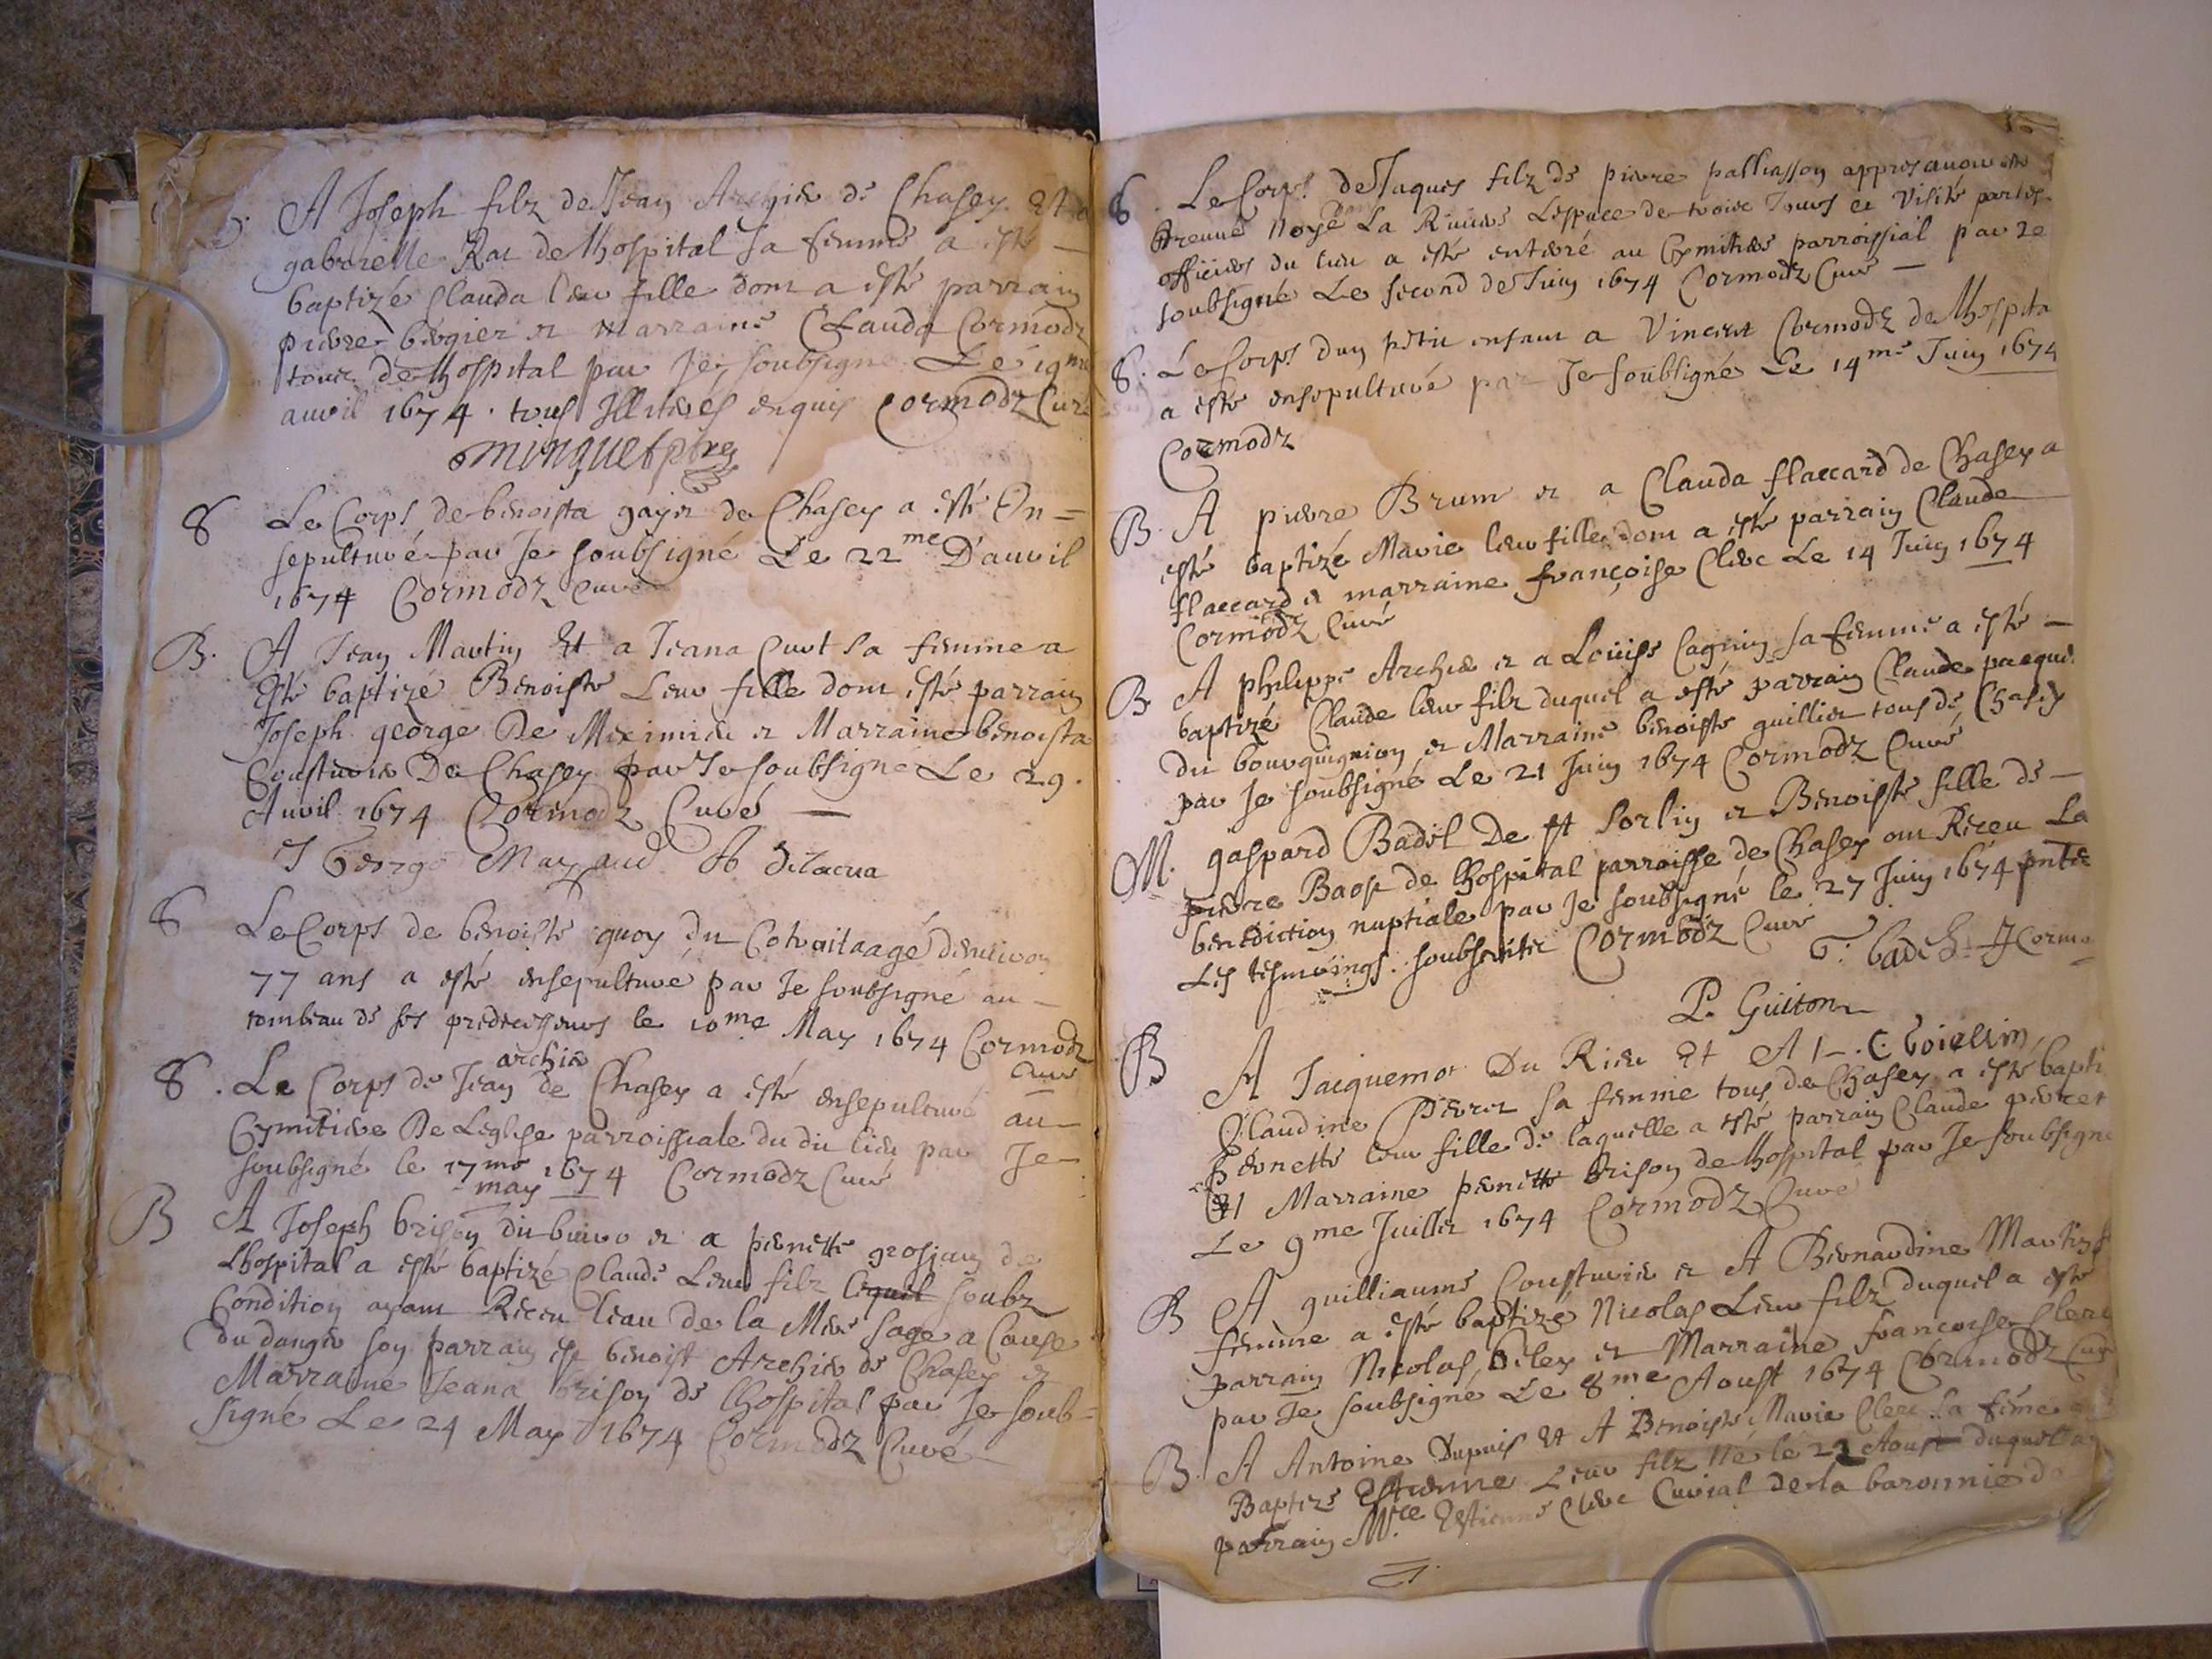 A Joseph filz de Jean Archier de Chasey Et a
gabrielle Rat de lhospital sa femme a esté
baptizé Clauda leur fille dont a esté parrain
pierre bergier et marraine Clauda Cormodz
tout de lhospital par Je soubsigne Le 19me
auril 1674 . tous Illiteres enquis Cormodz Curé
minguet pbre
S Le Corps de benoista gayet de Chasey a esté En=
sepulturé par Je soubsigné Le 22me D'auril
1674 Cormodz Curé
B. A Jean Martin Et a Jeana Curt sa femme a
Esté baptizé Benoiste Leur fille dont esté parrain
Joseph george De Meximieu et Marraine benoista
Cousturier De Chasey par Je soubsigne Le 29.
Auril 1674 Cormodz Curé
J George
S Le Corps de benoiste quoy du aagé denuiron
77 ans a esté ensepulturé par Je soubsigné au
tombeau de ses predecesseurs le 10me May 1674 Cormodz
Curé
S. Le Corps de Jean archier de Chasey a esté ensepulturé au
Cymitiere De Leglise parroissiale du dit lieu par Je
soubsigné le 17me may 1674 Cormodz Curé
B A Joseph brison du et a pernette grosjean de
Lhospital a esté baptizé Claude Leur filz lequel soubz
Condition ayant Receu leau de la Mere sage a Cause
du danger son parrain est benoist Archier de Chasey et
Marraine Jeana brison de lhospital par Je soub=
signé Le 24 May 1674 Cormodz Curé
S. Le Corps de Jaques filz de pierre palliasson appres auoir esté
noyé dans La Riuiere Lespace de trois Jours et Visité par les
officiers du lieu a esté enterré au Cymitiere parroissial par Je
soubsigné Le second de Juin 1674 Cormodz Curé
S. Le Corps dun petit enfant a Vincent Cormodz de lhospital
a esté ensepulturé par Je soubsigné Le 14me Juin 1674
Cormodz
B. A pierre Brum et a Clauda flaccard de Chasey a
esté baptizé Marie leur fille dont a esté parrain Claude
flaccard et marraine françoise Clerc Le 14 Juin 1674
Cormodz Curé
B A philippe Archier et a Louise Cagnin sa femme a esté
baptizé Claude leur filz duquel a esté parrain Claude
du bourguignion et Marraine benoiste guillier tous de Chasey
par Je soubsigné Le 21 Juin 1674 Cormodz Curé
M. gaspard Badel De st Sorlin et Benoiste fille de
pierre de lhospital parroisse de Chasey ont Receu La
benediction nuptiale par Je soubsigné le 27 Juin 1674
Les tesmoings Cormodz Curé
P. Guiton
B A Jacquemot Du Rieu Et A
Claudine Perret sa femme tous de Chasey a esté bapti
Pernette leur fille de laquelle a esté parrain Claude perret
Et Marraine pernette brison de lhospital par Je soubsigné
Le 9me Juillet 1674 Cormodz Curé
B A guilliaume Cousturier et A Bernardine Martin
femme a esté baptizé Nicolas Leur filz duquel a esté
parrain Nicolas et Marraine francoise Clerc
par Je soubsigné Le 8me Aoust 1674 Cormodz Curé
B. A Antoine Dupuis Et A Benoiste Marie Clerc sa féme
Baptizé Estienne Leur filz Né le 22 Aoust duquel a
parrain Mre Estienne Clerc Curial de la baronnie de